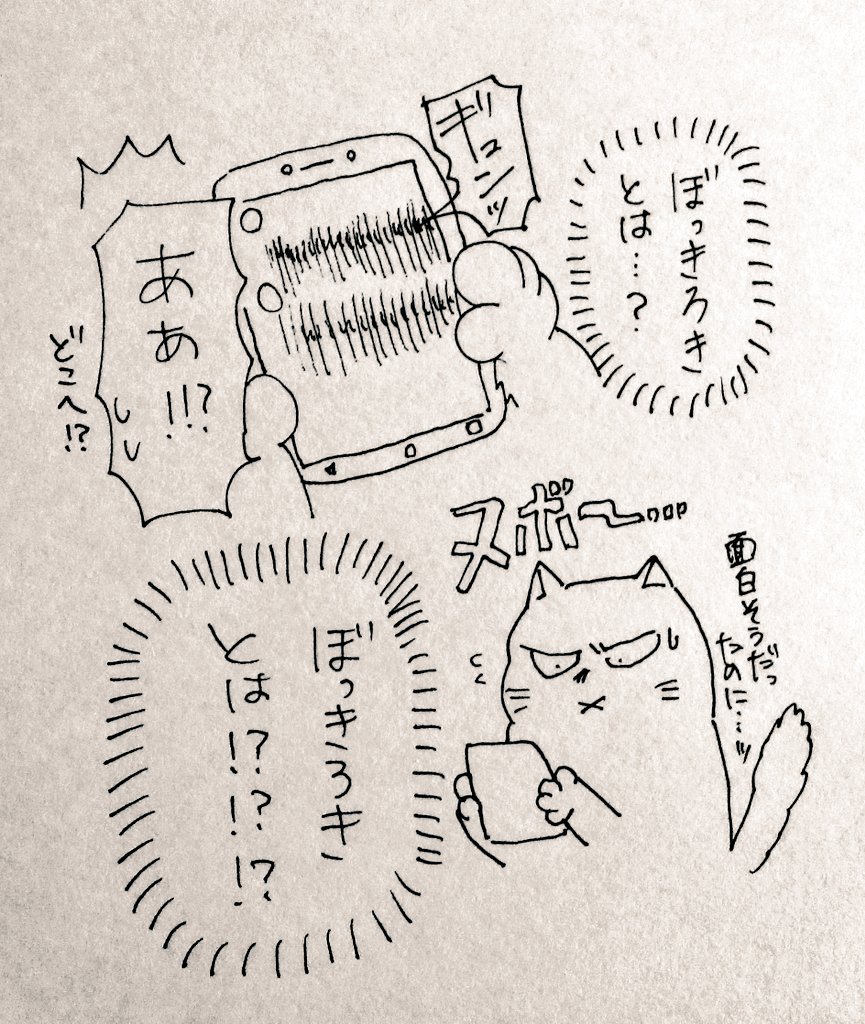 ぼっきろき
とは…?
ギュンッ
ああ!!?
どこへ!?
ヌポ〜…
面白そうだっ
たのに…ッ
ぼっきろき
とは!?!?!?